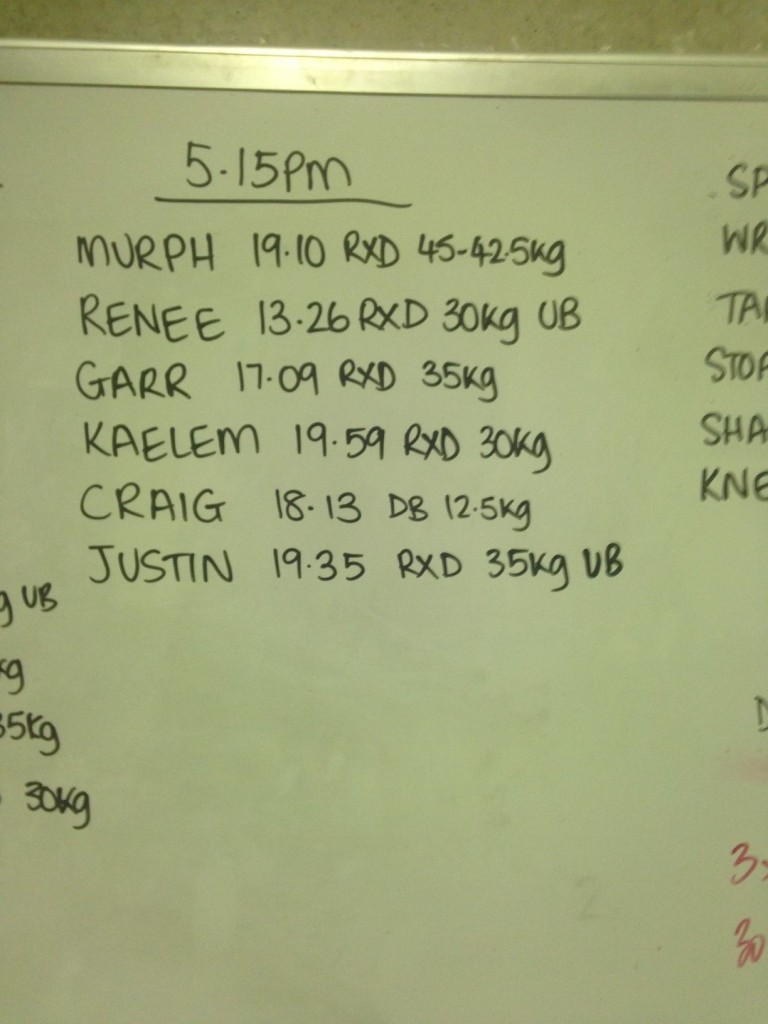 5.15PM
MURPH 19.10 RXD 45-42.5kg
RENEE 13.26 RXD 30kg UB
GARR 17.09 RXD 35kg
KAELEM 19.59 RXD 30kg
CRAIG 18.13 DB 12.5kg
JUSTIN 19.35 RXD 35kg UB
g UB
kg
35kg
30kg
SP
WR
TA
STOP
SHA
KNE
D
3
30